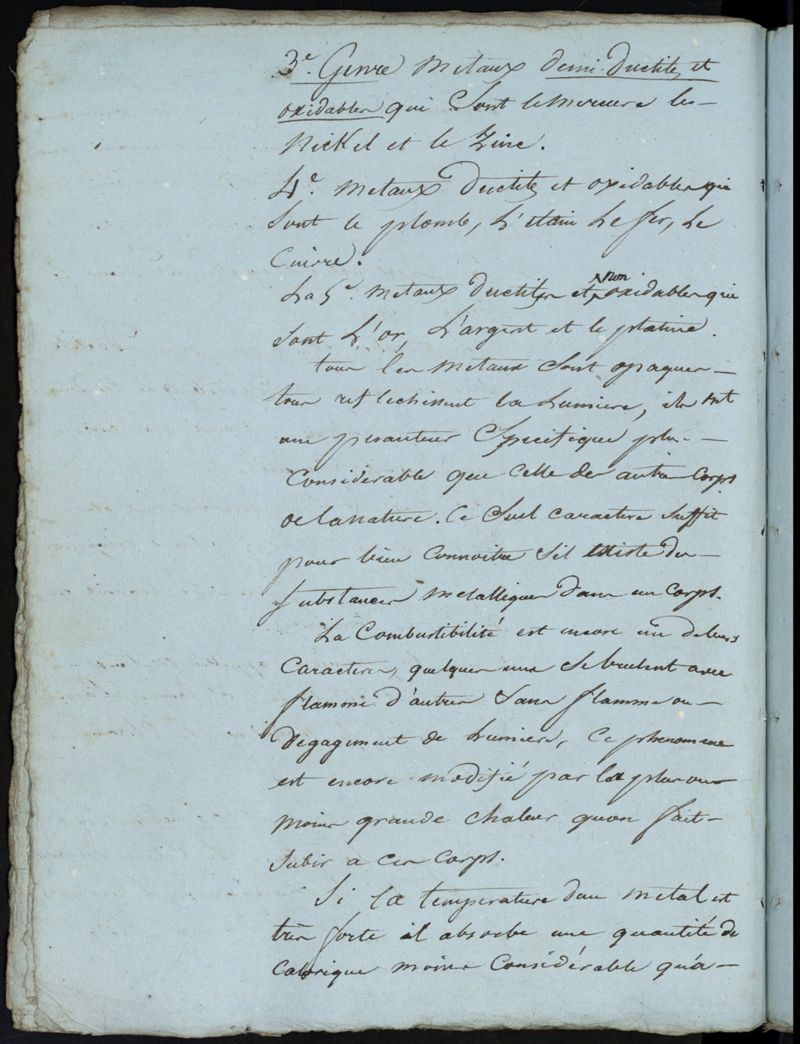 3e. Genre metaux demi-Ductiles et
oxidables qui Sont le mercure le
Nickel et le Zinc.
4e. metaux Ductiles et oxidables qui
Sont le plomb, L'etain Le fer, Le
Cuivre.
La 5e. metaux ductiles et non oxidables qui
Sont L'or, L'argent et le platine.
tous les metaux Sont opaques
tous reflechissent la Lumiere, ils ont
une pesanteur Specifique plus
Considerable que Celle des autres Corps
de la nature. Ce Seul caractere Suffit
pour bien Connoitre S'il existe des
Substances metalliques dans un Corps.
La Combustibilité est encore un de leurs
Caracteres, quelques uns Se brulent avec
flamme d'autres Sans flamme ou
Degagement de Lumiere, Ce phenomene
est encore modifié par la plus ou
moins grande chaleur quon fait
Subir a ces Corps.
Si la temperature d'un metal est
très forte il absorbe une quantité de
Calorique moins Considérable qu'a